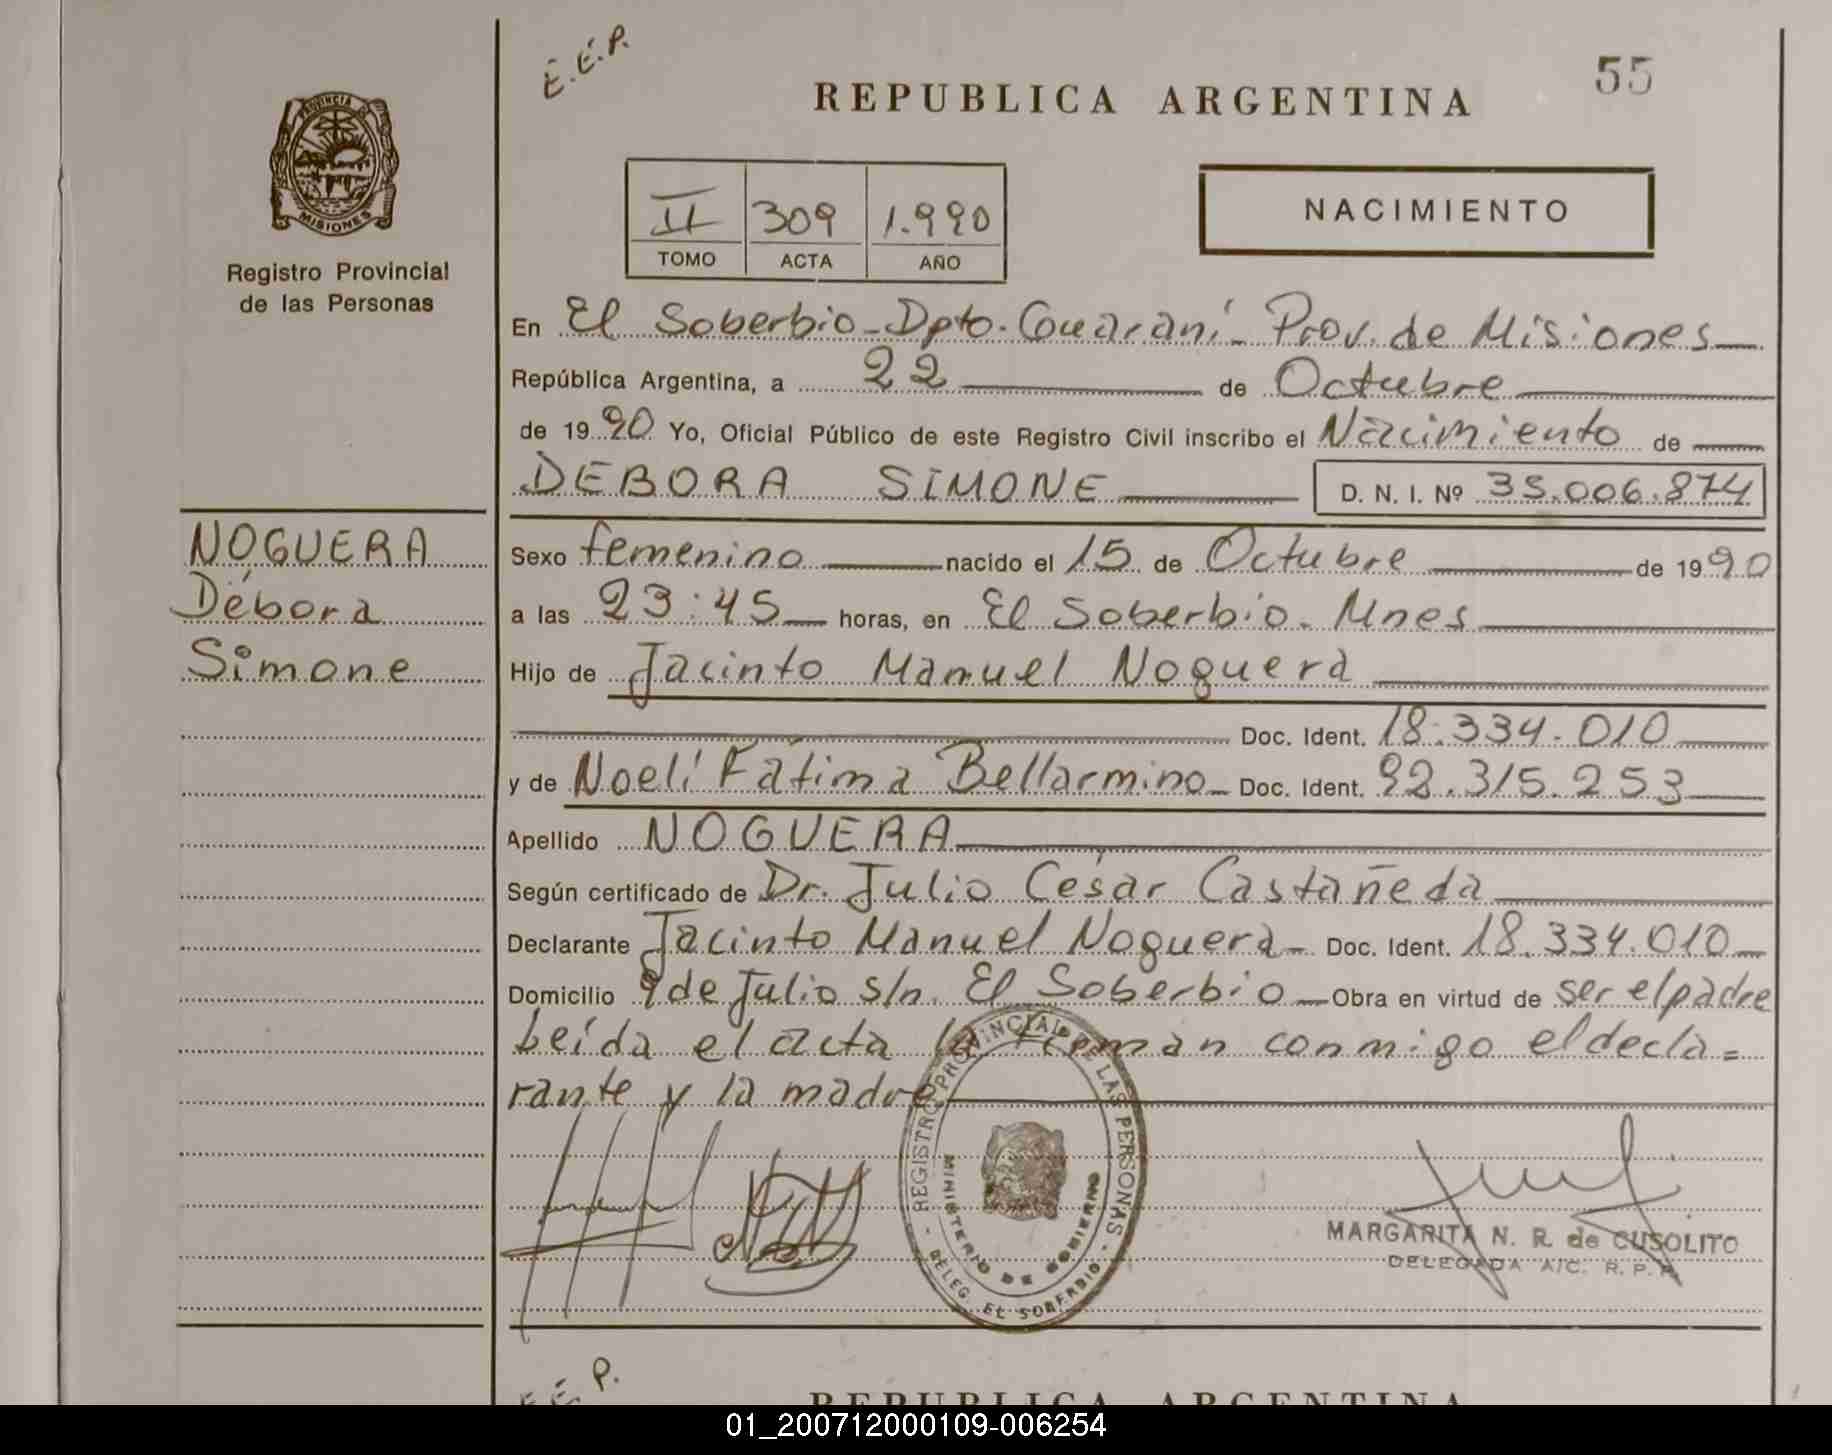 E.E.P.
55
REPUBLICA ARGENTINA
PROVINCIA
MISIONES
Registro Provincial
de las Personas
II 309 1.990
TOMO ACTA AÑO
NACIMIENTO
En El Soberbio-Dpto. Guaraní- Prov. de Misiones
República Argentina, a 22 de Octubre
de 1990 Yo, Oficial Público de este Registro Civil inscribo el Nacimiento de
DEBORA SIMONE D. N. I. Nº 35.006.874
NOGUERA
Débora
Simone
Sexo femenino nacido el 15 de Octubre de 1990
a las 23:45 horas, en El Soberbio. Mnes
Hijo de Jacinto Manuel Noguera
Doc. Ident. 18.334.010
y de Noelí Fátima Bellarmino Doc. Ident. 92.315.253
Apellido NOGUERA
Según certificado de Dr. Julio César Castañeda
Declarante Jacinto Manuel Noguera Doc. Ident. 18.334.010
Domicilio 9 de Julio s/n. El Soberbio Obra en virtud de ser el padre
Leída el acta la firman conmigo el decla=
rante y la madre
REGISTRO PROVINCIAL DE LAS PERSONAS
MINISTERIO DE GOBIERNO
DELEG. EL SOBERBIO
MARGARITA N. R. de CUSOLITO
DELEGADA A/C. R. P. P.
E.E.P.
REPUBLICA ARGENTINA
01_200712000109-006254